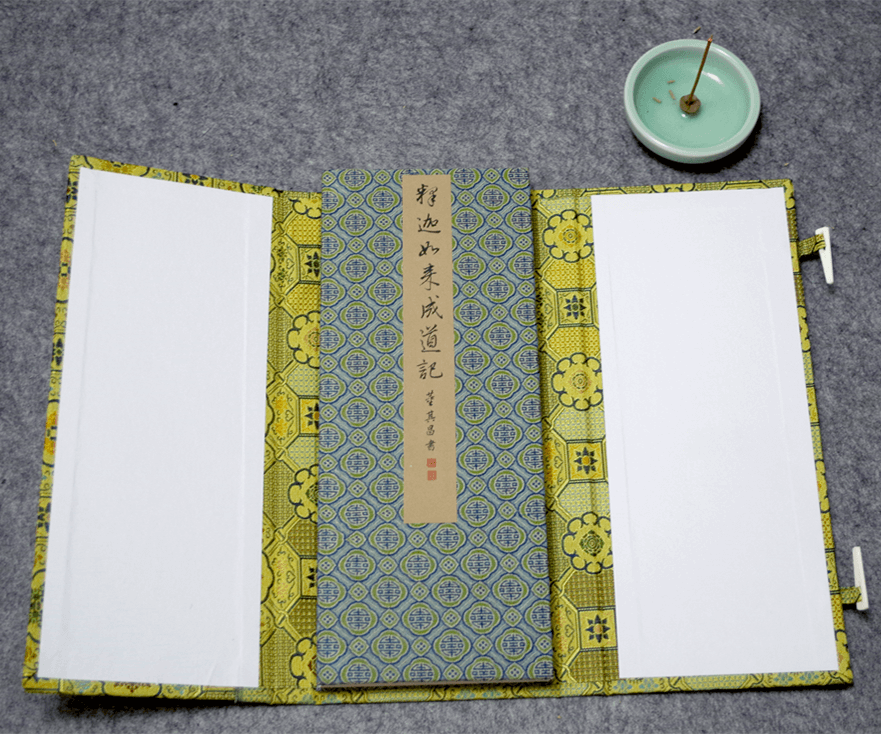 釋迦如来成道記
董其昌書